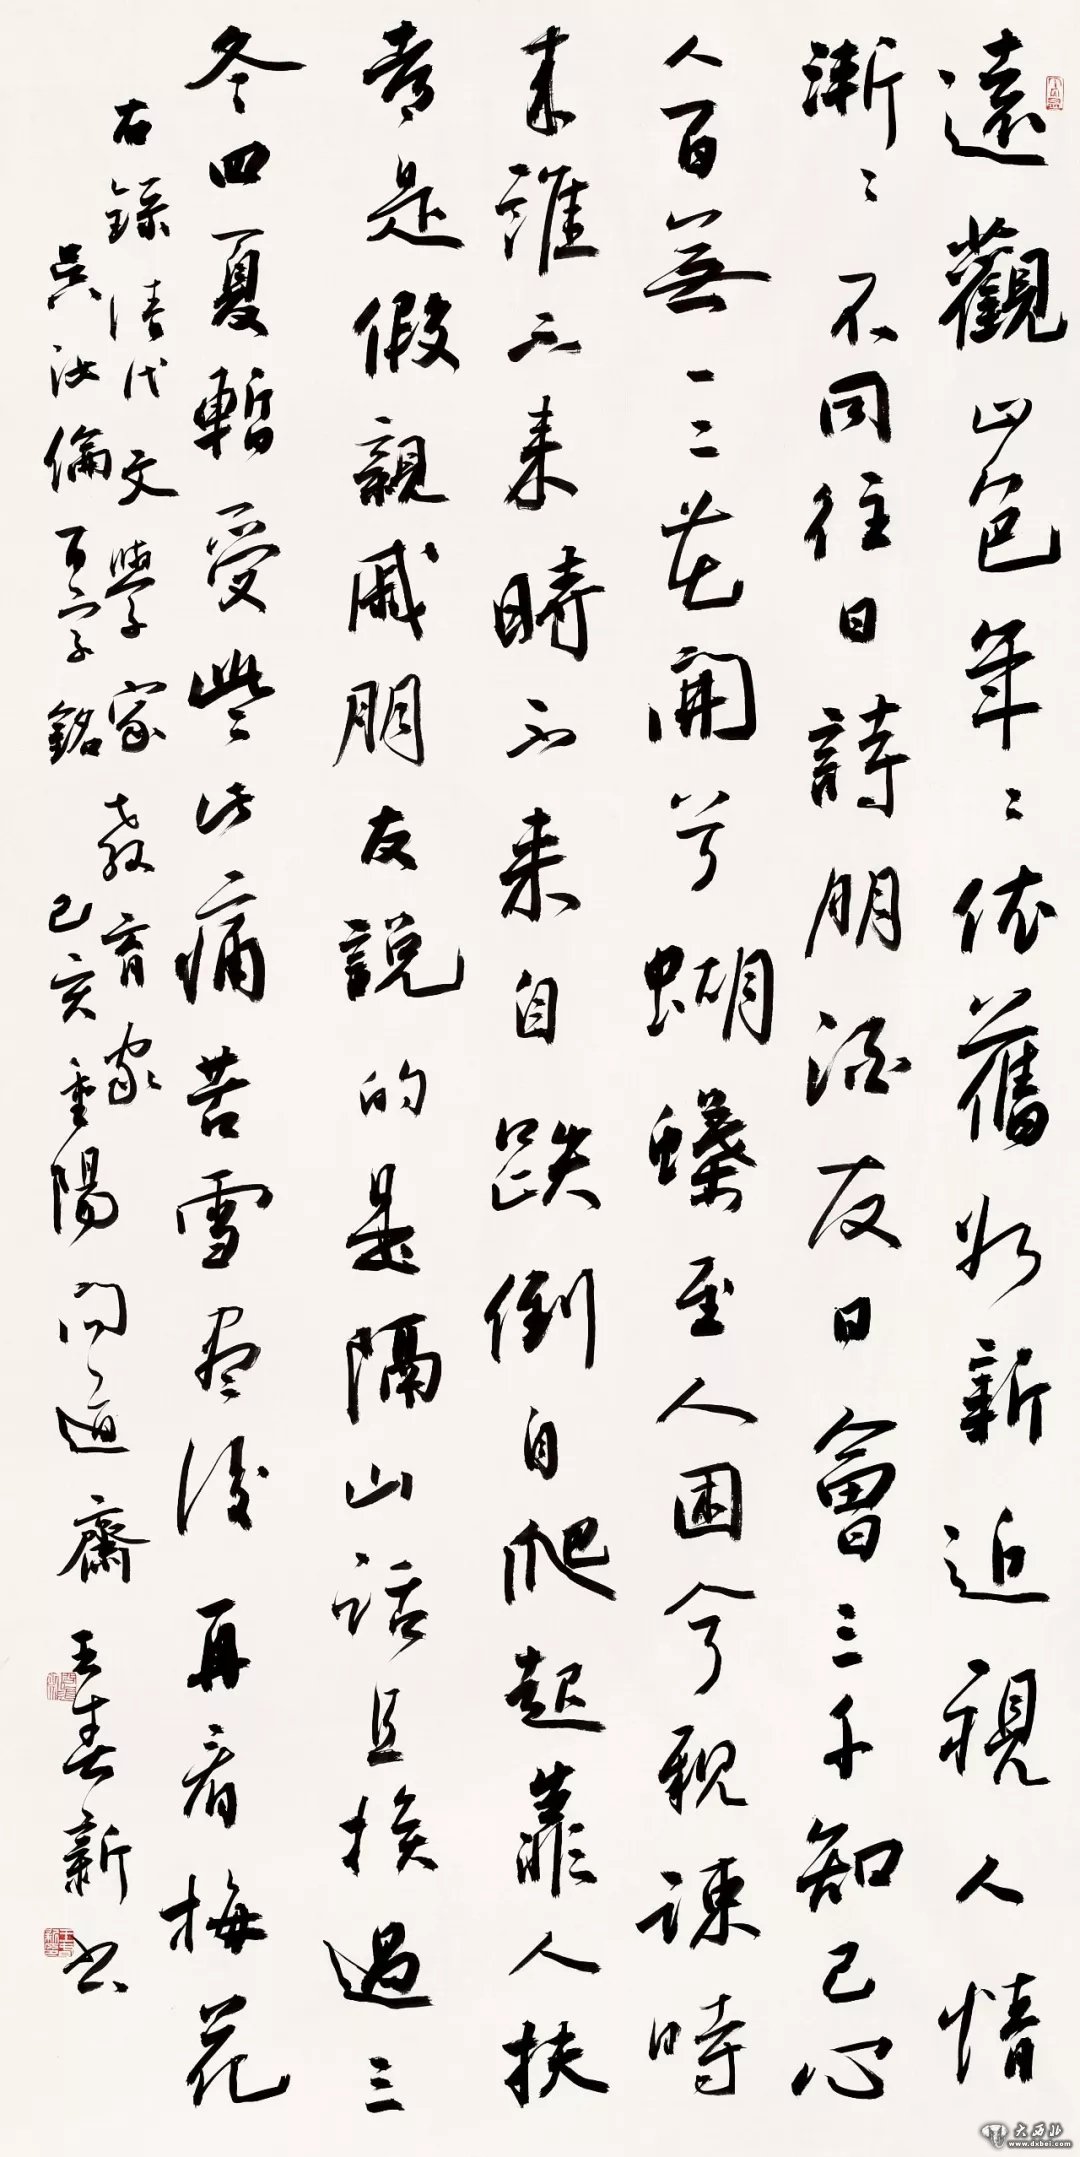 遠觀山色年〻依舊如新近視人情
漸〻不同往日詩朋酒友日會三千知己心
人百無一二花開兮蝴蝶至人困兮親疎時
来誰不来時不来自跌倒自爬起靠人扶
者是假親戚朋友說的是隔山話且挨過三
冬四夏暫受些此痛苦雪盡後再看梅花
右錄清代文學家教育家
吳汝倫百字銘己亥重陽問道齋王春新書
大西北
www.dxbei.com